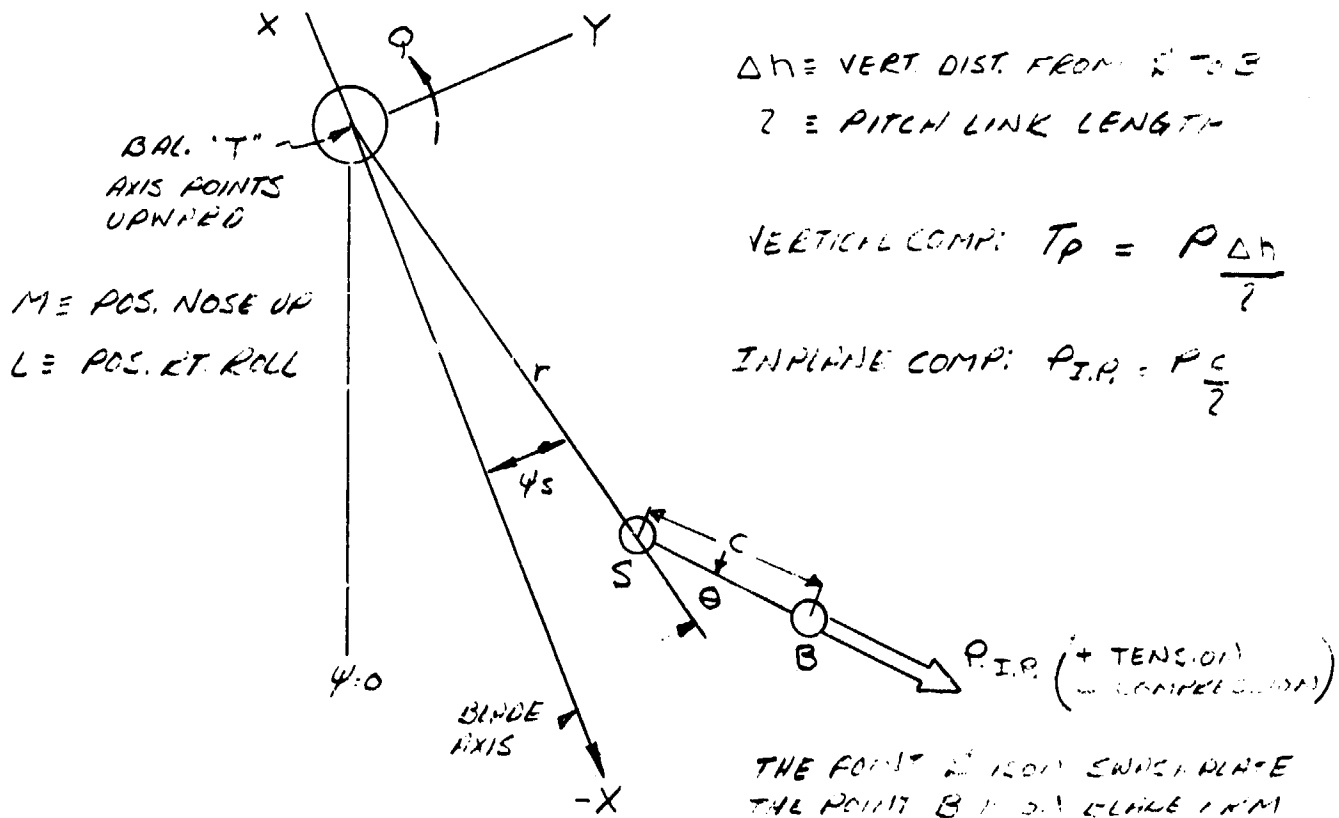 X
Y
Q
Δh ≡ VERT. DIST. FROM TO
l ≡ PITCH LINK LENGTH
BAL. "T"
AXIS POINTS
UPWARD
VERTICAL COMP: Tp = P Δh/l
M ≡ POS. NOSE UP
L ≡ POS. RT. ROLL
INPLANE COMP: P I.P. = P c/l
r
ψs
C
S
θ
B
P I.P. (+ TENSION
- COMPRESSION)
ψ=0
BLADE
AXIS
-X
THE POINT IS ON SWASHPLATE
THE POINT B IS ON BLADE ARM